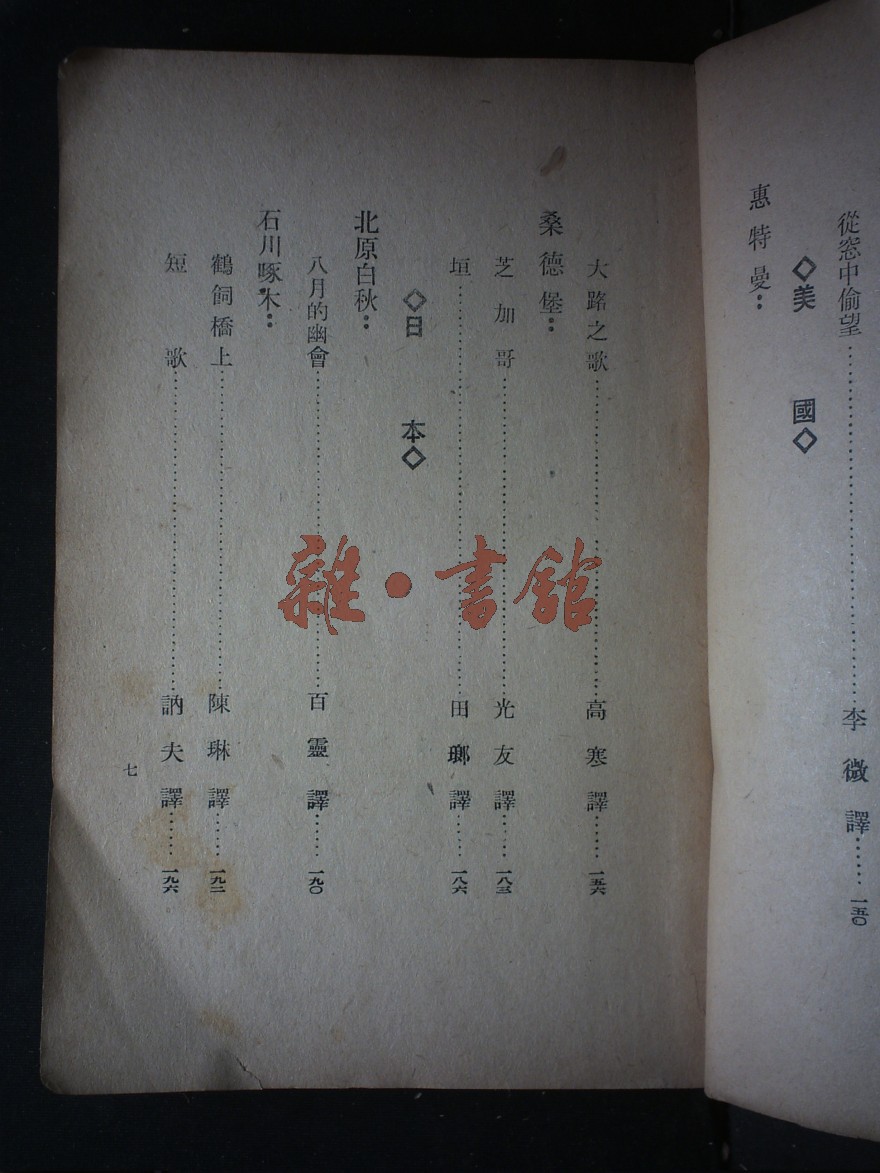 從窓中偷望……………………李微譯……一五〇
◇美國◇
惠特曼：
大路之歌……………………高寒譯……一五六
桑德堡：
芝加哥……………………光友譯……一八三
垣……………………田瑯譯……一八六
◇日本◇
北原白秋：
八月的幽會……………………百靈譯……一九〇
石川啄木：
鶴飼橋上……………………陳琳譯……一九二
短歌……………………訥夫譯……一九六
七
雜·書館